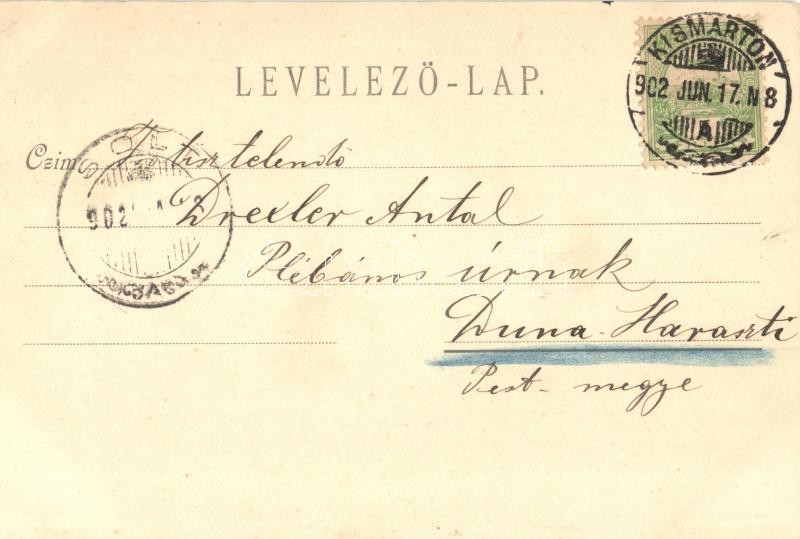 LEVELEZŐ-LAP.
KISMARTON
902 JUN. 17. N8
A
Czim
tisztelendő
902
Drexler Antal
Plébános úrnak
Duna-Haraszti
Pest-megye